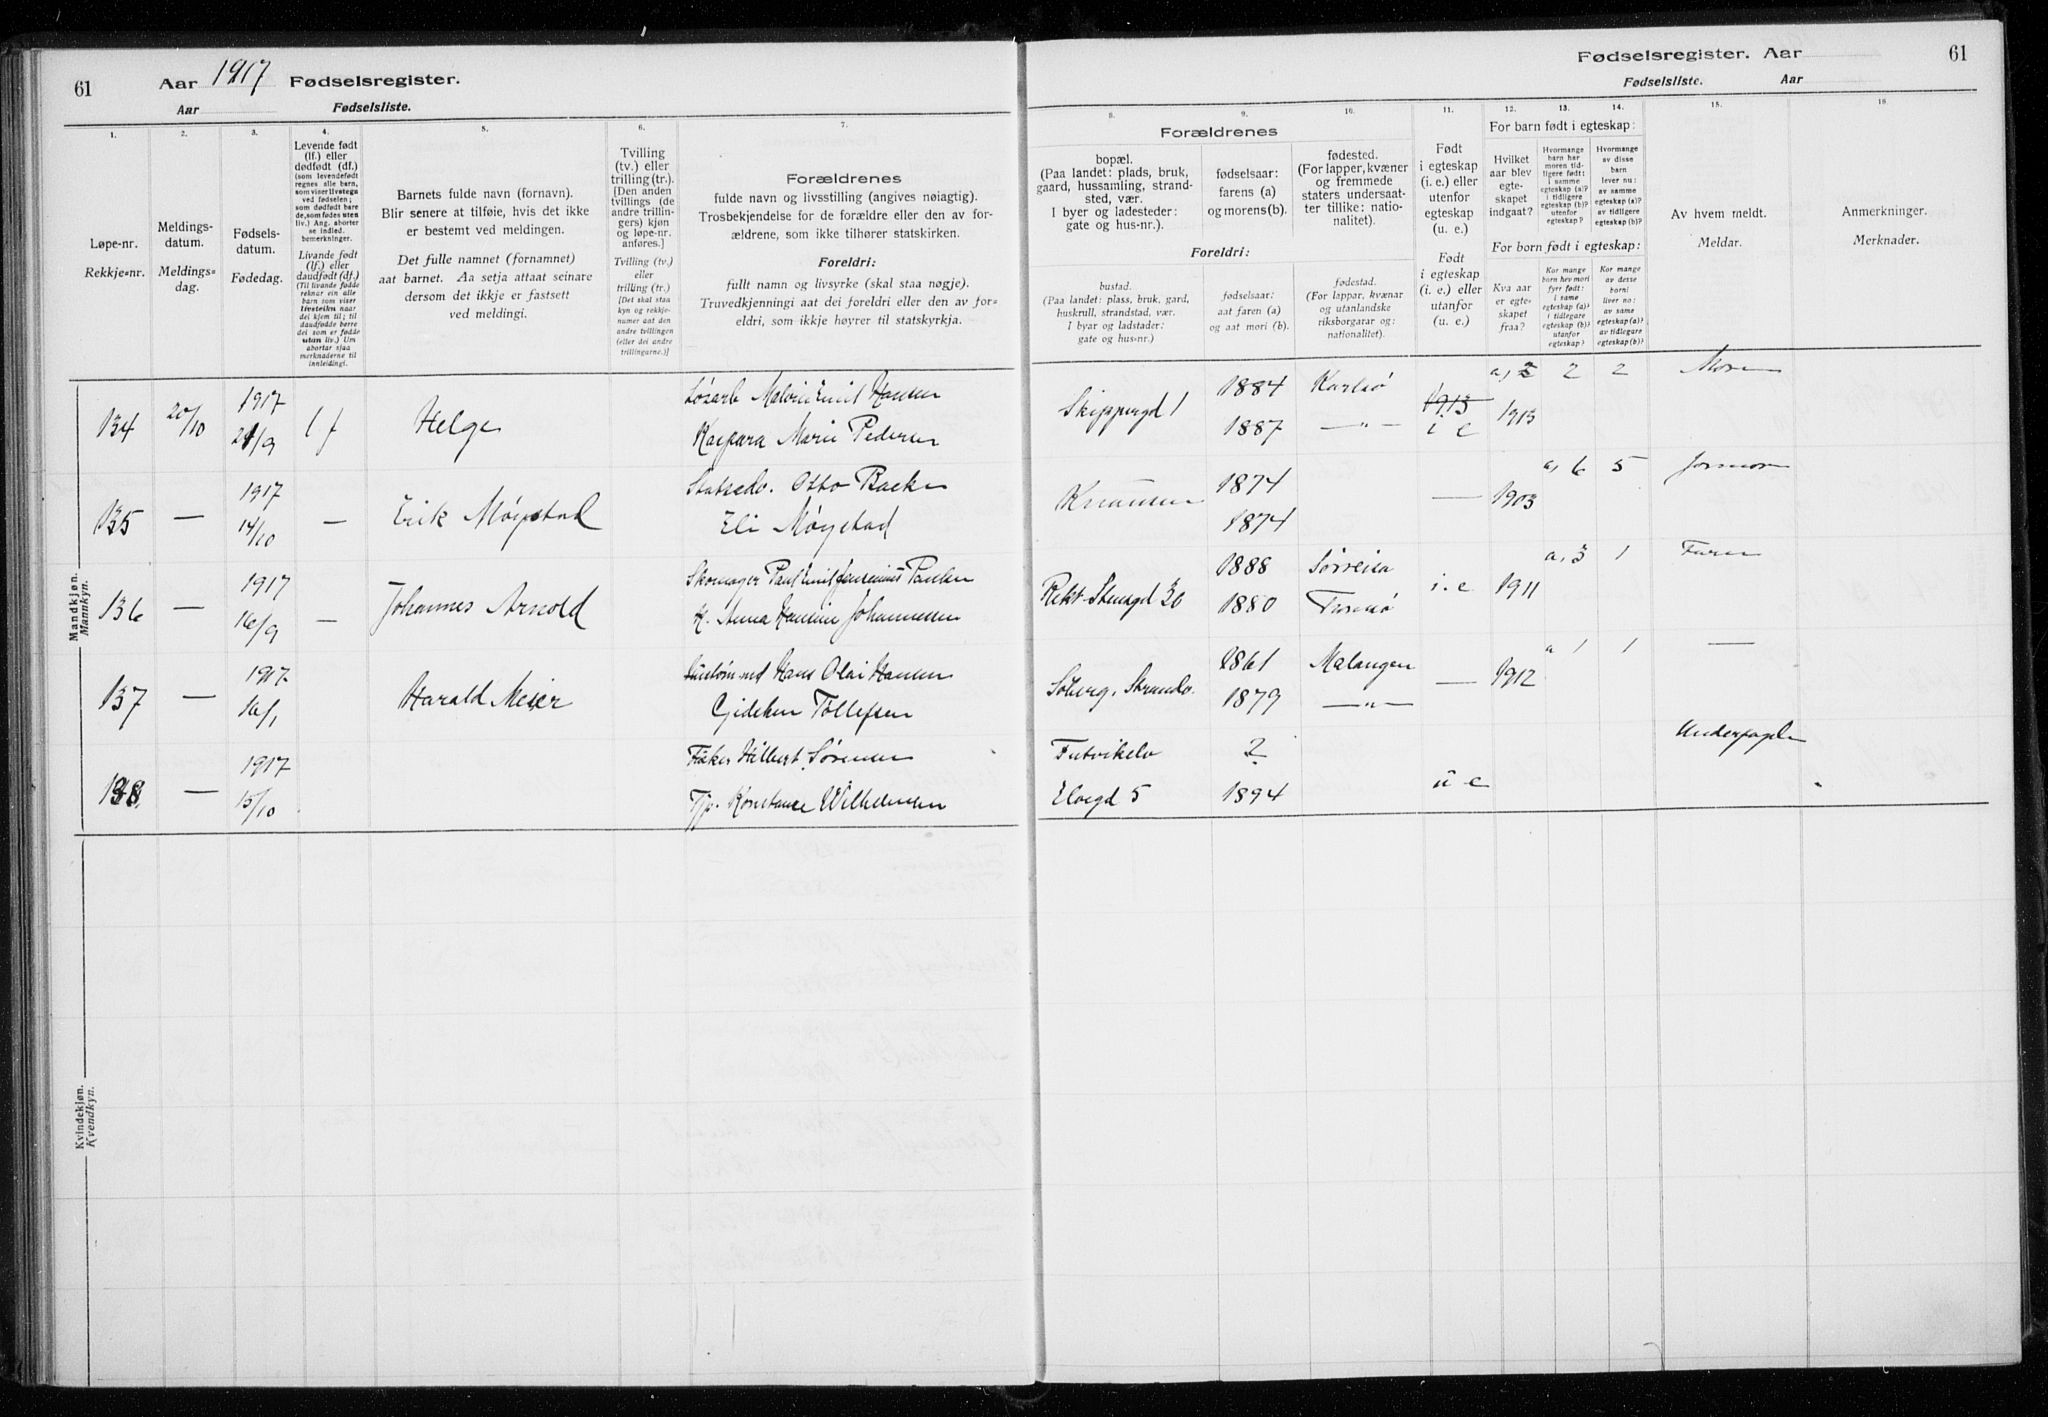 61 Aar 1917 Fødselsregister.
Aar Fødselsliste.
1. 2. 3. 4. 5. 6. 7.
Løpe-nr.
Rekkje-nr.
Meldings-
datum.
Meldings-
dag.
Fødsels-
datum.
Fødedag.
Levende født
(lf.) eller
dødfødt (df.)
(som levendefødt
regnes alle barn,
som viser livstegn
ved fødselen;
som dødfødt bare
de, som fødes uten
liv.) Ang. aborter
se indled.
bemerkninger.
Livande født
(lf.) eller
daudfødt (df.)
(Til livande fødde
reknar ein alle
barn som viser
livsteikn naar
dei kjem til; til
daudfødde berre
dei som er fødde
utan liv.) Um
abortar sjaa
merknaderne til
innleidingi.
Barnets fulde navn (fornavn).
Blir senere at tilføie, hvis det ikke
er bestemt ved meldingen.
Det fulle namnet (fornamnet)
aat barnet. Aa setja attaat seinare
dersom det ikkje er fastsett
ved meldingi.
Tvilling
(tv.) eller
trilling (tr.).
[Den anden
tvillings (de
andre trillin-
gers) kjøn
og løpe-nr.
anføres.]
Tvilling (tv.)
eller
trilling (tr.)
[Det skal staa
kyn og rekkje-
numer aat den
andre tvillingen
(eller dei andre
trillingarne.)]
Forældrenes
fulde navn og livsstilling (angives nøiagtig).
Trosbekjendelse for de forældre eller den av for-
ældrene, som ikke tilhører statskirken.
Foreldri:
fullt namn og livsyrke (skal staa nøgje).
Truvedkjenningi aat dei foreldri eller den av for-
eldri, som ikkje høyrer til statskyrkja.
Mandkjøn.
Mannkyn.
134 20/10 1917 lf Helge Hansen
Kaspara Marie Pedersen
135 — 1917 14/10 — Erik Møystad Otto Backer
Eli Møystad
136 — 1917 16/9 — Johannes Arnold Skomager Paul Paulsen
Anna Johannessen
137 — 1917 Harald Meier Hans Olai Hansen
Tollefsen
138 — 1917 15/10 Hilbert Sørensen
Konstance Wilhelmsen
Kvindekjøn.
Kvendkyn.
Fødselsregister. Aar 61
Fødselsliste. Aar
8. 9. 10. 11. 12. 13. 14. 15. 16.
Forældrenes
bopæl.
(Paa landet: plads, bruk,
gaard, hussamling, strand-
sted, vær.
I byer og ladesteder:
gate og hus-nr.).
fødselsaar:
farens (a)
og morens(b).
fødested.
(For lapper, kvæner
og fremmede
staters undersaat-
ter tillike: natio-
nalitet).
Foreldri:
bustad.
(Paa landet: plass, bruk, gard,
huskrull, strandstad, vær.
I byar og ladstader:
gate og hus-nr.)
fødselsaar:
aat faren (a)
og aat mori (b).
fødestad.
(For lappar, kvænar
og utanlandske
riksborgarar og:
nationalitet).
Født
i egteskap
(i. e.) eller
utenfor
egteskap
(u. e.)
Født
i egteskap
(i. e.) eller
utanfor
egteskap
(u. e.)
For barn født i egteskap:
Hvilket
aar blev
egte-
skapet
indgaat?
Hvormange
barn har
moren tid-
ligere født:
i samme
egteskap (a)?
i tidligere
egteskap (b)?
utenfor
egteskap?
Hvormange
av disse
barn
lever nu:
av samme
egteskap (a)?
av tidligere
egteskap (b)?
For born født i egteskap:
Kva aar
er egte-
skapet
fraa?
Kor mange
born hev mori
fyrr født:
i same
egteskap (a)?
i tidlegare
egteskap (b)?
utanfor
egteskap?
Kor mange
av desse
born
liver no:
av same
egteskap (a)?
av tidlegare
egteskap (b)?
Av hvem meldt.
Meldar.
Anmerkninger.
Merknader.
Skippergd 1 1884 Karlsø 1913 1913 2 2 Moren
1887 —"— i e
1874 — 1903 a, 6 5 Jormor
1874
30 1888 Sørreisa i. e 1911 a, 3 1 Faren
1880 Tromsø
1861 Malangen — 1912 a 1 1 —
1879 —"—
?
5 1894 u e